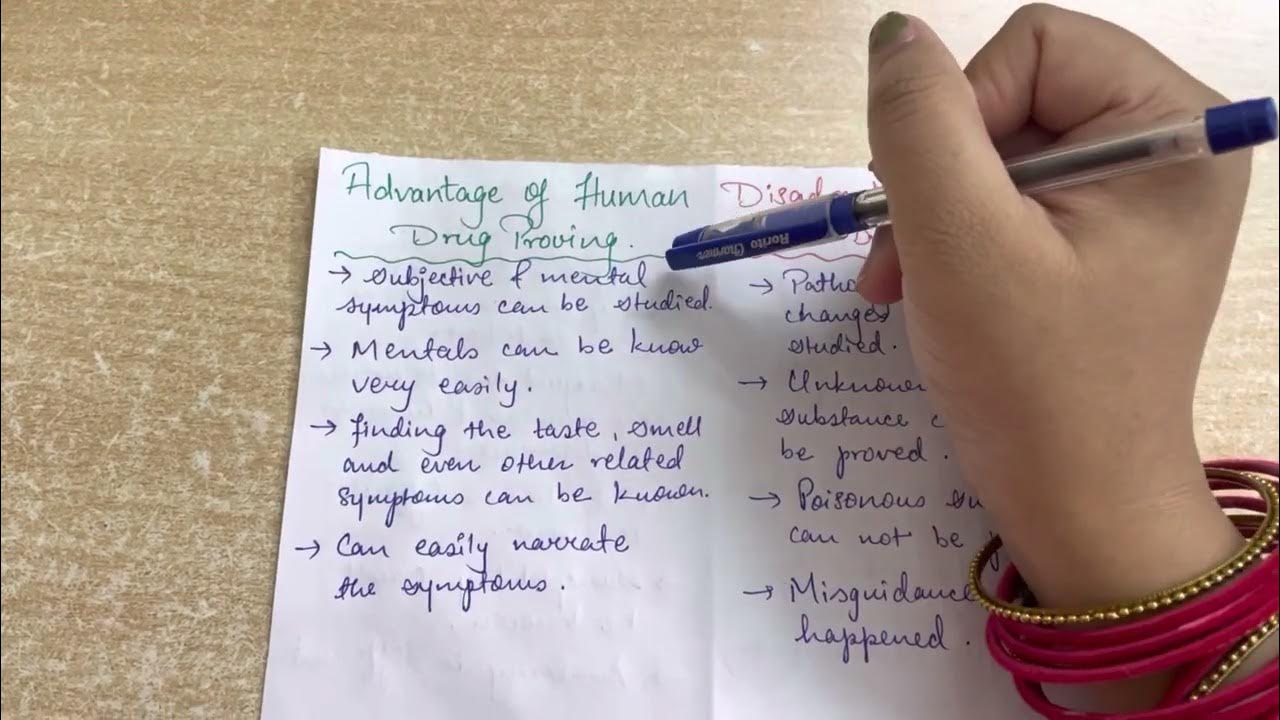 Advantage of Human
Drug Proving.
→ subjective & mental
symptoms can be studied.
→ Mentals can be know
very easily.
→ finding the taste, smell
and even other related
symptoms can be known.
→ Can easily narrate
the symptoms.
→
changes
studied.
→ Unknown
substance
be proved.
→ Poisonous
can not be
→ Misguidance
happened.
Rorito Charmer